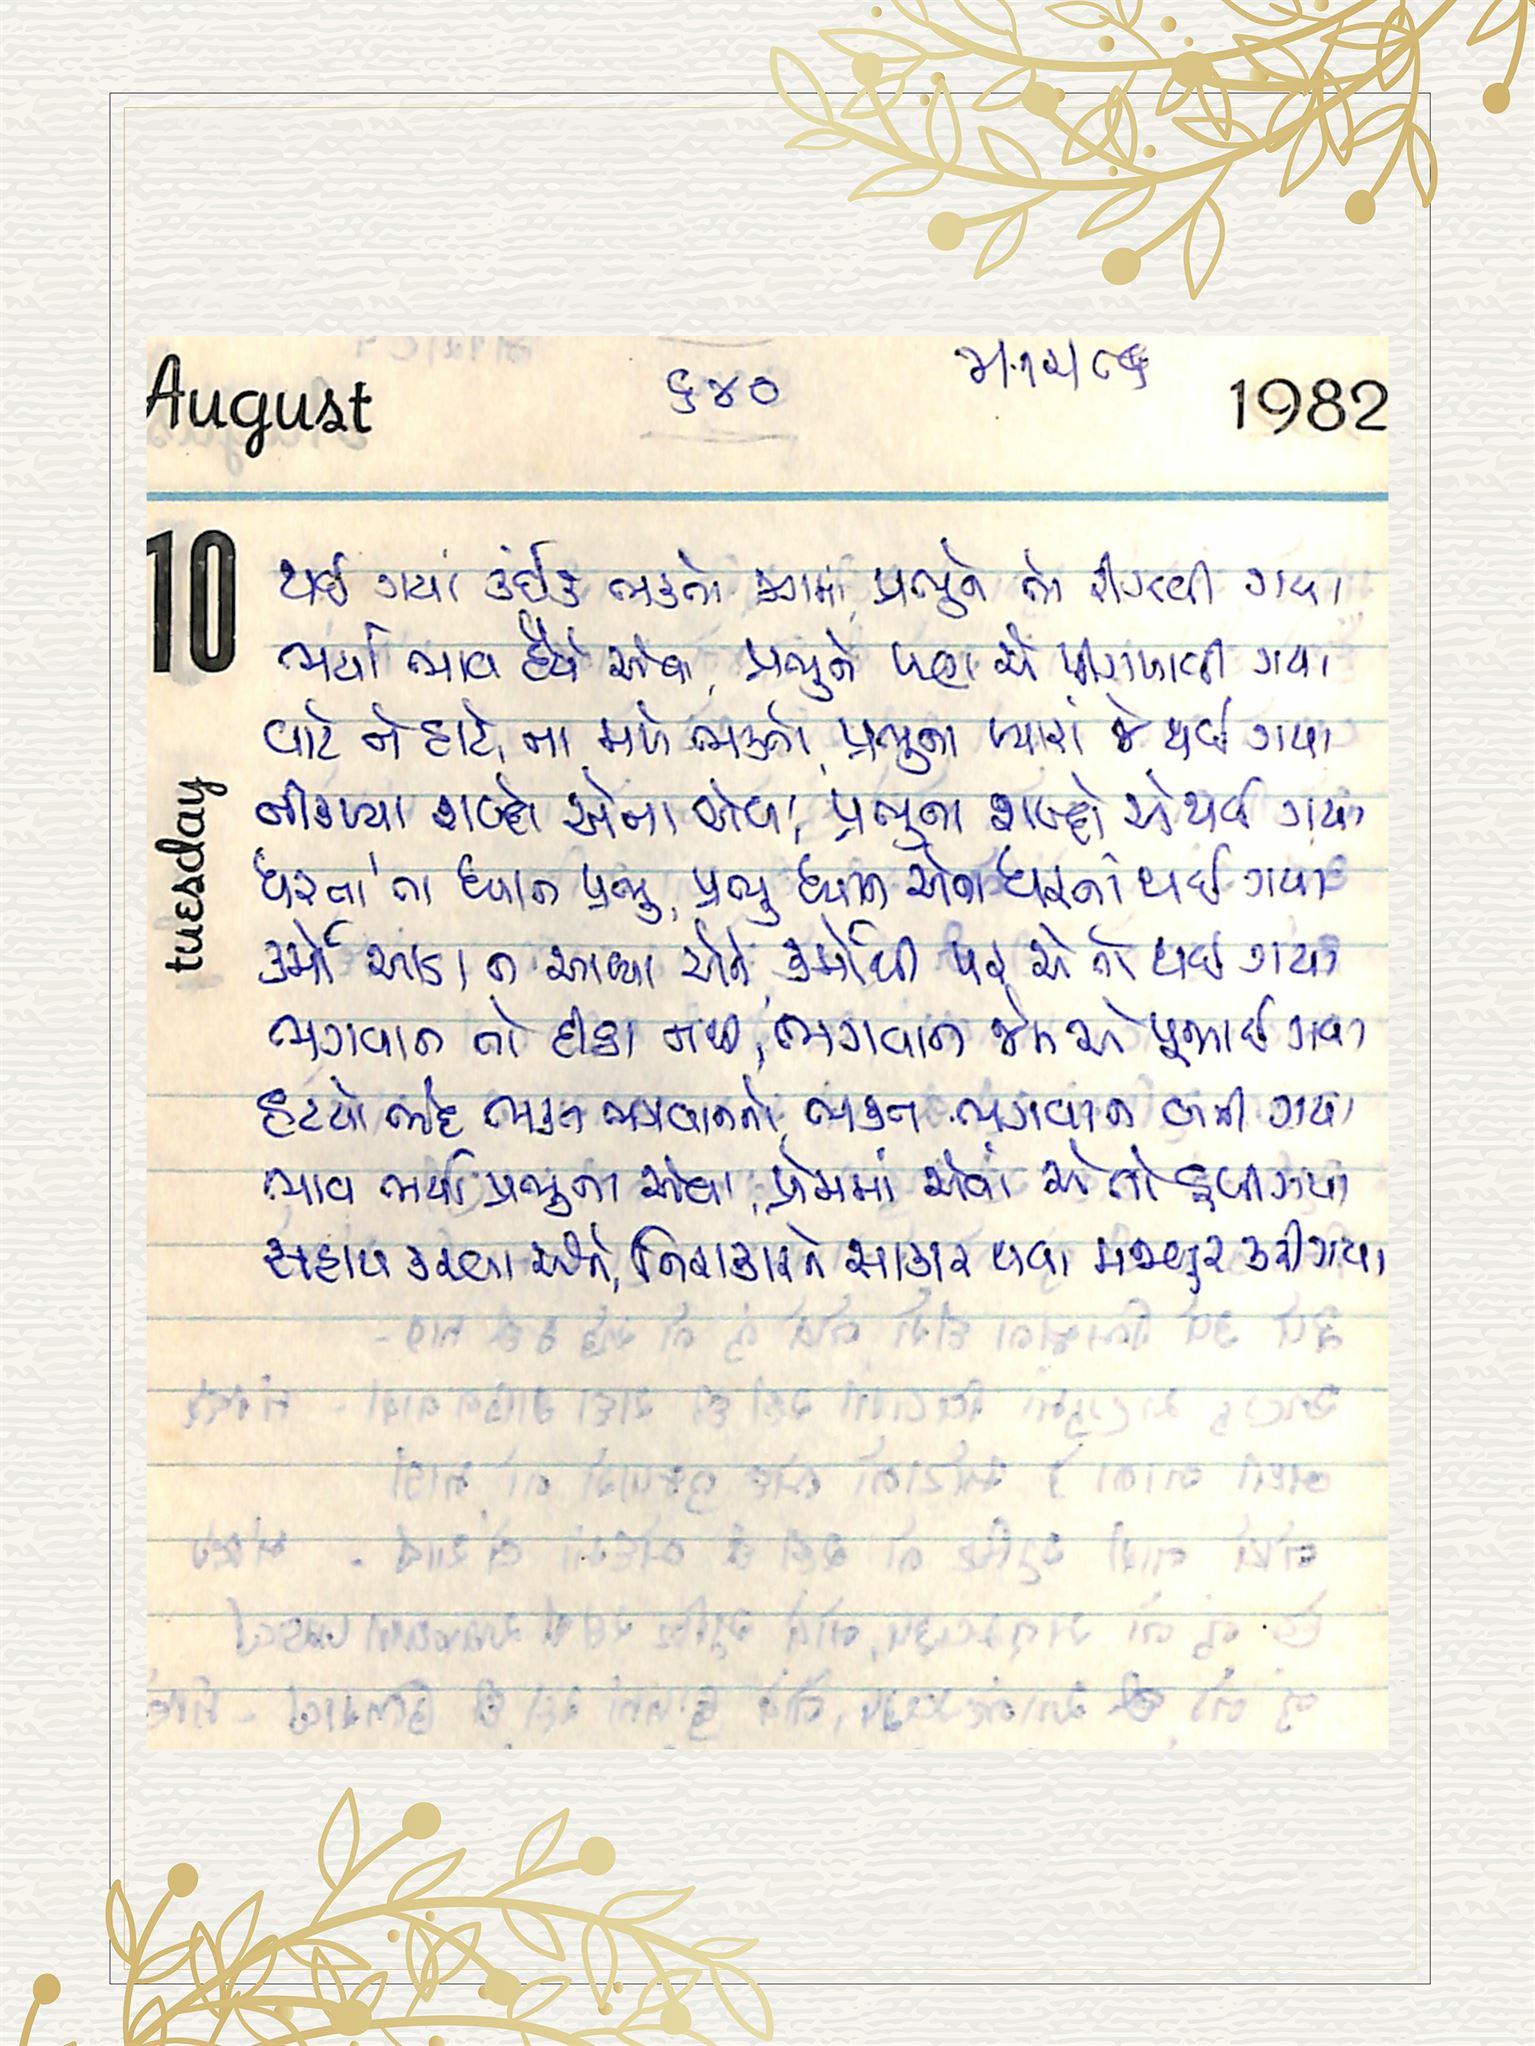 August
૬૪૦
૩/૧૨/૮૬
1982
10
tuesday
થઈ ગયાં કંઈક ભક્તો જગમાં, પ્રભુને તો રીઝવી ગયા
ભર્યા ભાવ હૈયે એવા, પ્રભુને પણ એ પીગળાવી ગયા
વાટે ને ઘાટે, ના મળે ભક્તો, પ્રભુના પ્યારાં જે થઈ ગયા
નીકળ્યા શબ્દો એના એવા, પ્રભુના શબ્દો એ થઈ ગયા
ધરતાં'તા ધ્યાન પ્રભુ, પ્રભુ ધ્યાન એના ધરતાં થઈ ગયા
કર્મો આડા ન આવ્યા એને, કર્મોથી પર એ તો થઈ ગયા
ભગવાન તો દીઠા નથી, ભગવાન જેમ એ પૂજાઈ ગયા
હટયો ભેદ ભક્ત ભગવાનનો, ભક્ત ભગવાન બની ગયા
ભાવ ભર્યા પ્રભુના એવા, પ્રેમમાં એવાં એ તો ડૂબી ગયા
સહાય કરવા એને, નિરાકારને સાકાર થવા મજબૂર કરી ગયા